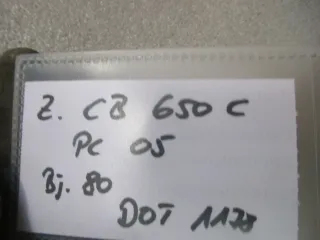 Z. CB 650 C
PC 05
Bj. 80
DOT 1178